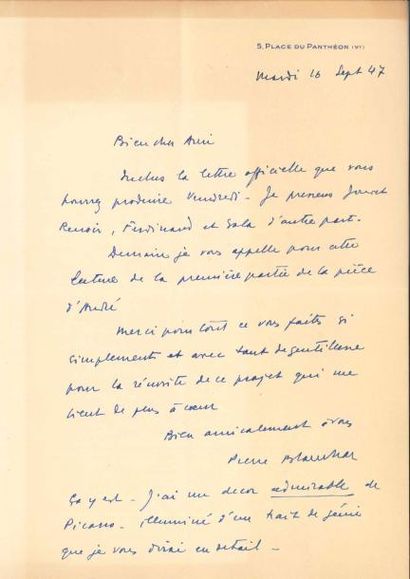 5, PLACE DU PANTHÉON (VE)
Mardi 16 Sept 47
Bien cher Ami
Inclus la lettre officielle que vous
pourrez produire Vendredi - Je previens Jouvet
Renoir, Ferdinand et Sala d'autre part.
Demain je vous appelle pour cette
lecture de la première partie de la pièce
d'André
Merci pour tout ce vous faites si
simplement et avec tant de gentillesse
pour la réussite de ce projet qui me
tient de plus à cœur
Bien amicalement à vous
Pierre Blanchar
Ça y est - J'ai un decor admirable de
Picasso - illuminé d'un trait de génie
que je vous dirai en detail -